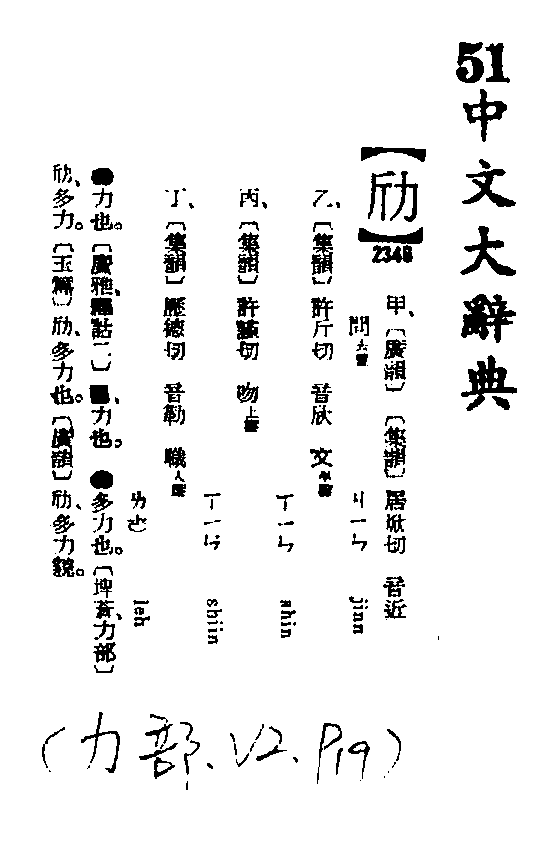 51中文大辭典
【劤】
2348
甲、〔廣韻〕〔集韻〕居焮切 音近
問去聲 ㄐㄧㄣ jinn
乙、〔集韻〕許斤切 音欣 文平聲
ㄒㄧㄣ shin
丙、〔集韻〕許謹切 吻上聲
ㄒㄧㄣ shiin
丁、〔集韻〕歷德切 音勒 職入聲
ㄌㄜ leh
●力也。〔廣雅、釋詁二〕劤、力也。●多力也。〔埤蒼、力部〕
劤、多力。〔玉篇〕劤、多力也。〔廣韻〕劤、多力貌。
(力部、V2、P19)